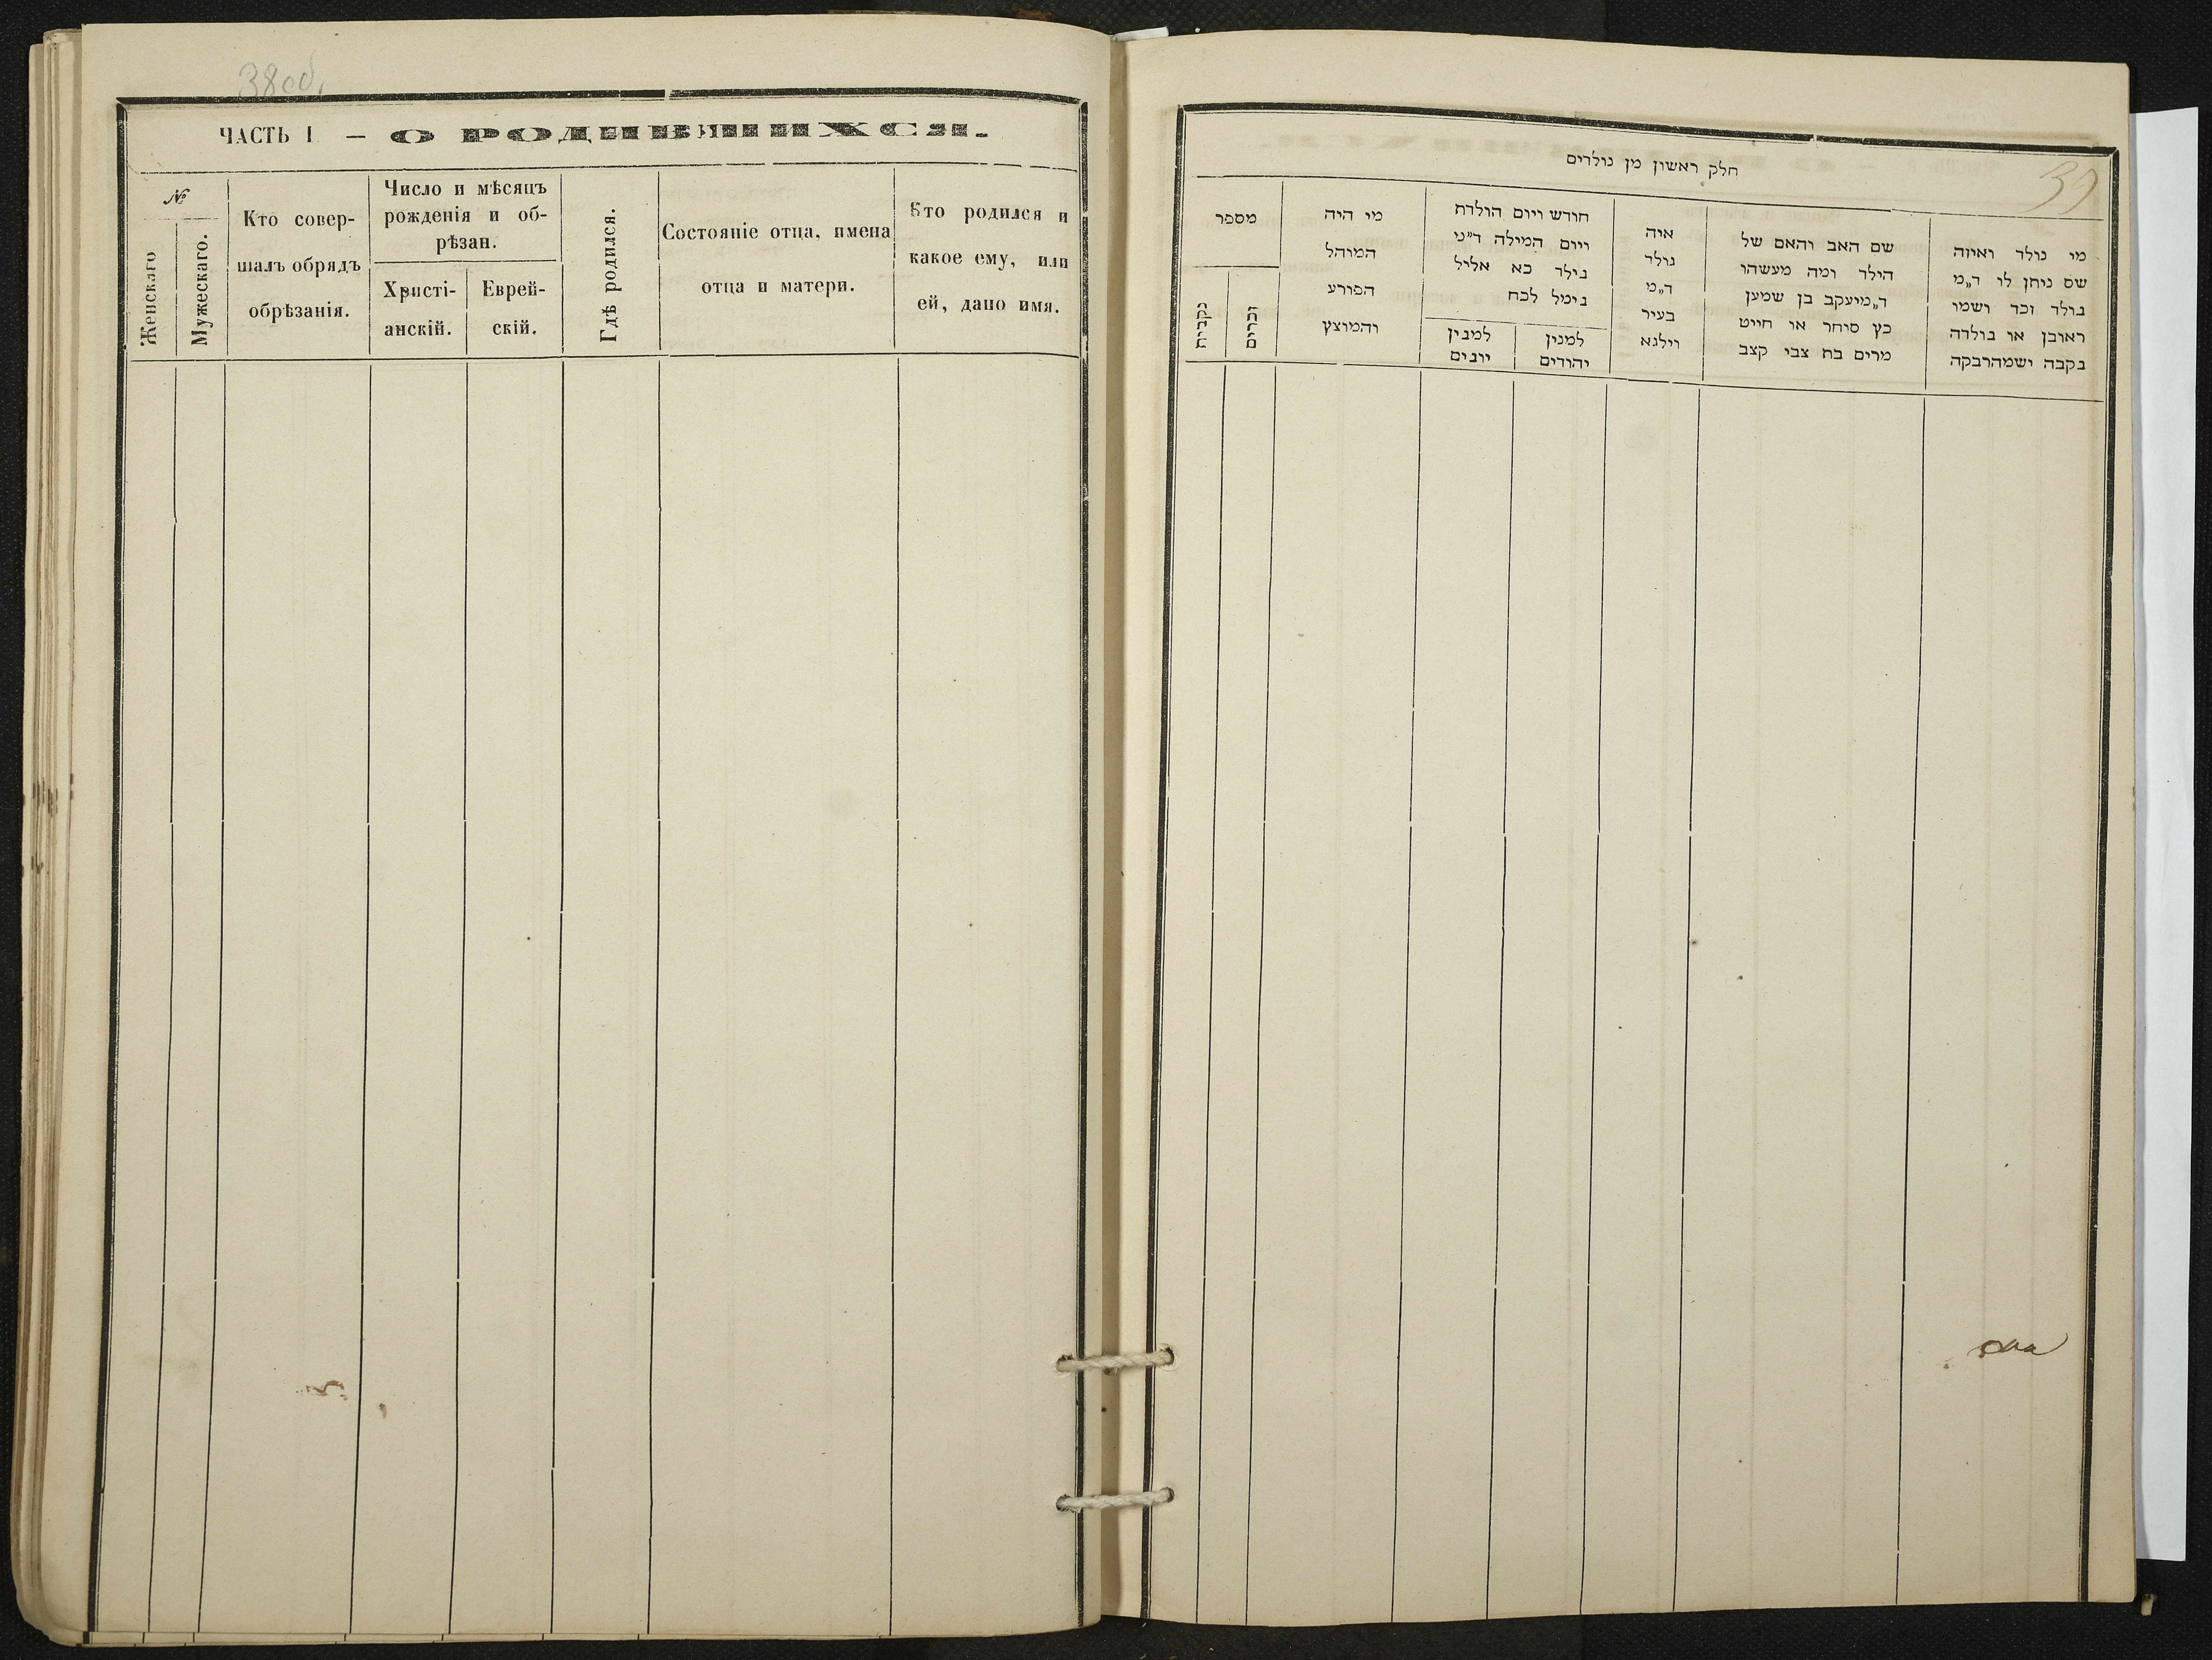 38об.
ЧАСТЬ I — О РОДИВШИХСЯ.
№
Женскаго
Мужескаго.
Кто совер-
шалъ обрядъ
обрѣзанія.
Число и мѣсяцъ
рожденія и об-
рѣзан.
Христі-
анскій.
Еврей-
скій.
Гдѣ родился.
Состояніе отца, имена
отца и матери.
Кто родился и
какое ему, или
ей, дано имя.
39
חלק ראשון מן נולדים
מי נולד ואיזה
שם ניתן לו ד״מ
נולד זכר ושמו
ראובן או נולדה
נקבה ושמהרבקה
שם האב והאם של
הילד ומה מעשהו
ד״מיעקב בן שמען
כץ סוחר או חייט
מרים בח צבי קצב
איה
נולד
ד״מ
בעיר
וילנא
חודש ויום הולדת
ויום המילה ד״מי
נילד כא אליל
נימל לכח
למנין
יהודים
למנין
יונים
מי היה
המוהל
הפורע
והמוצץ
מספר
זכרים
נקבות